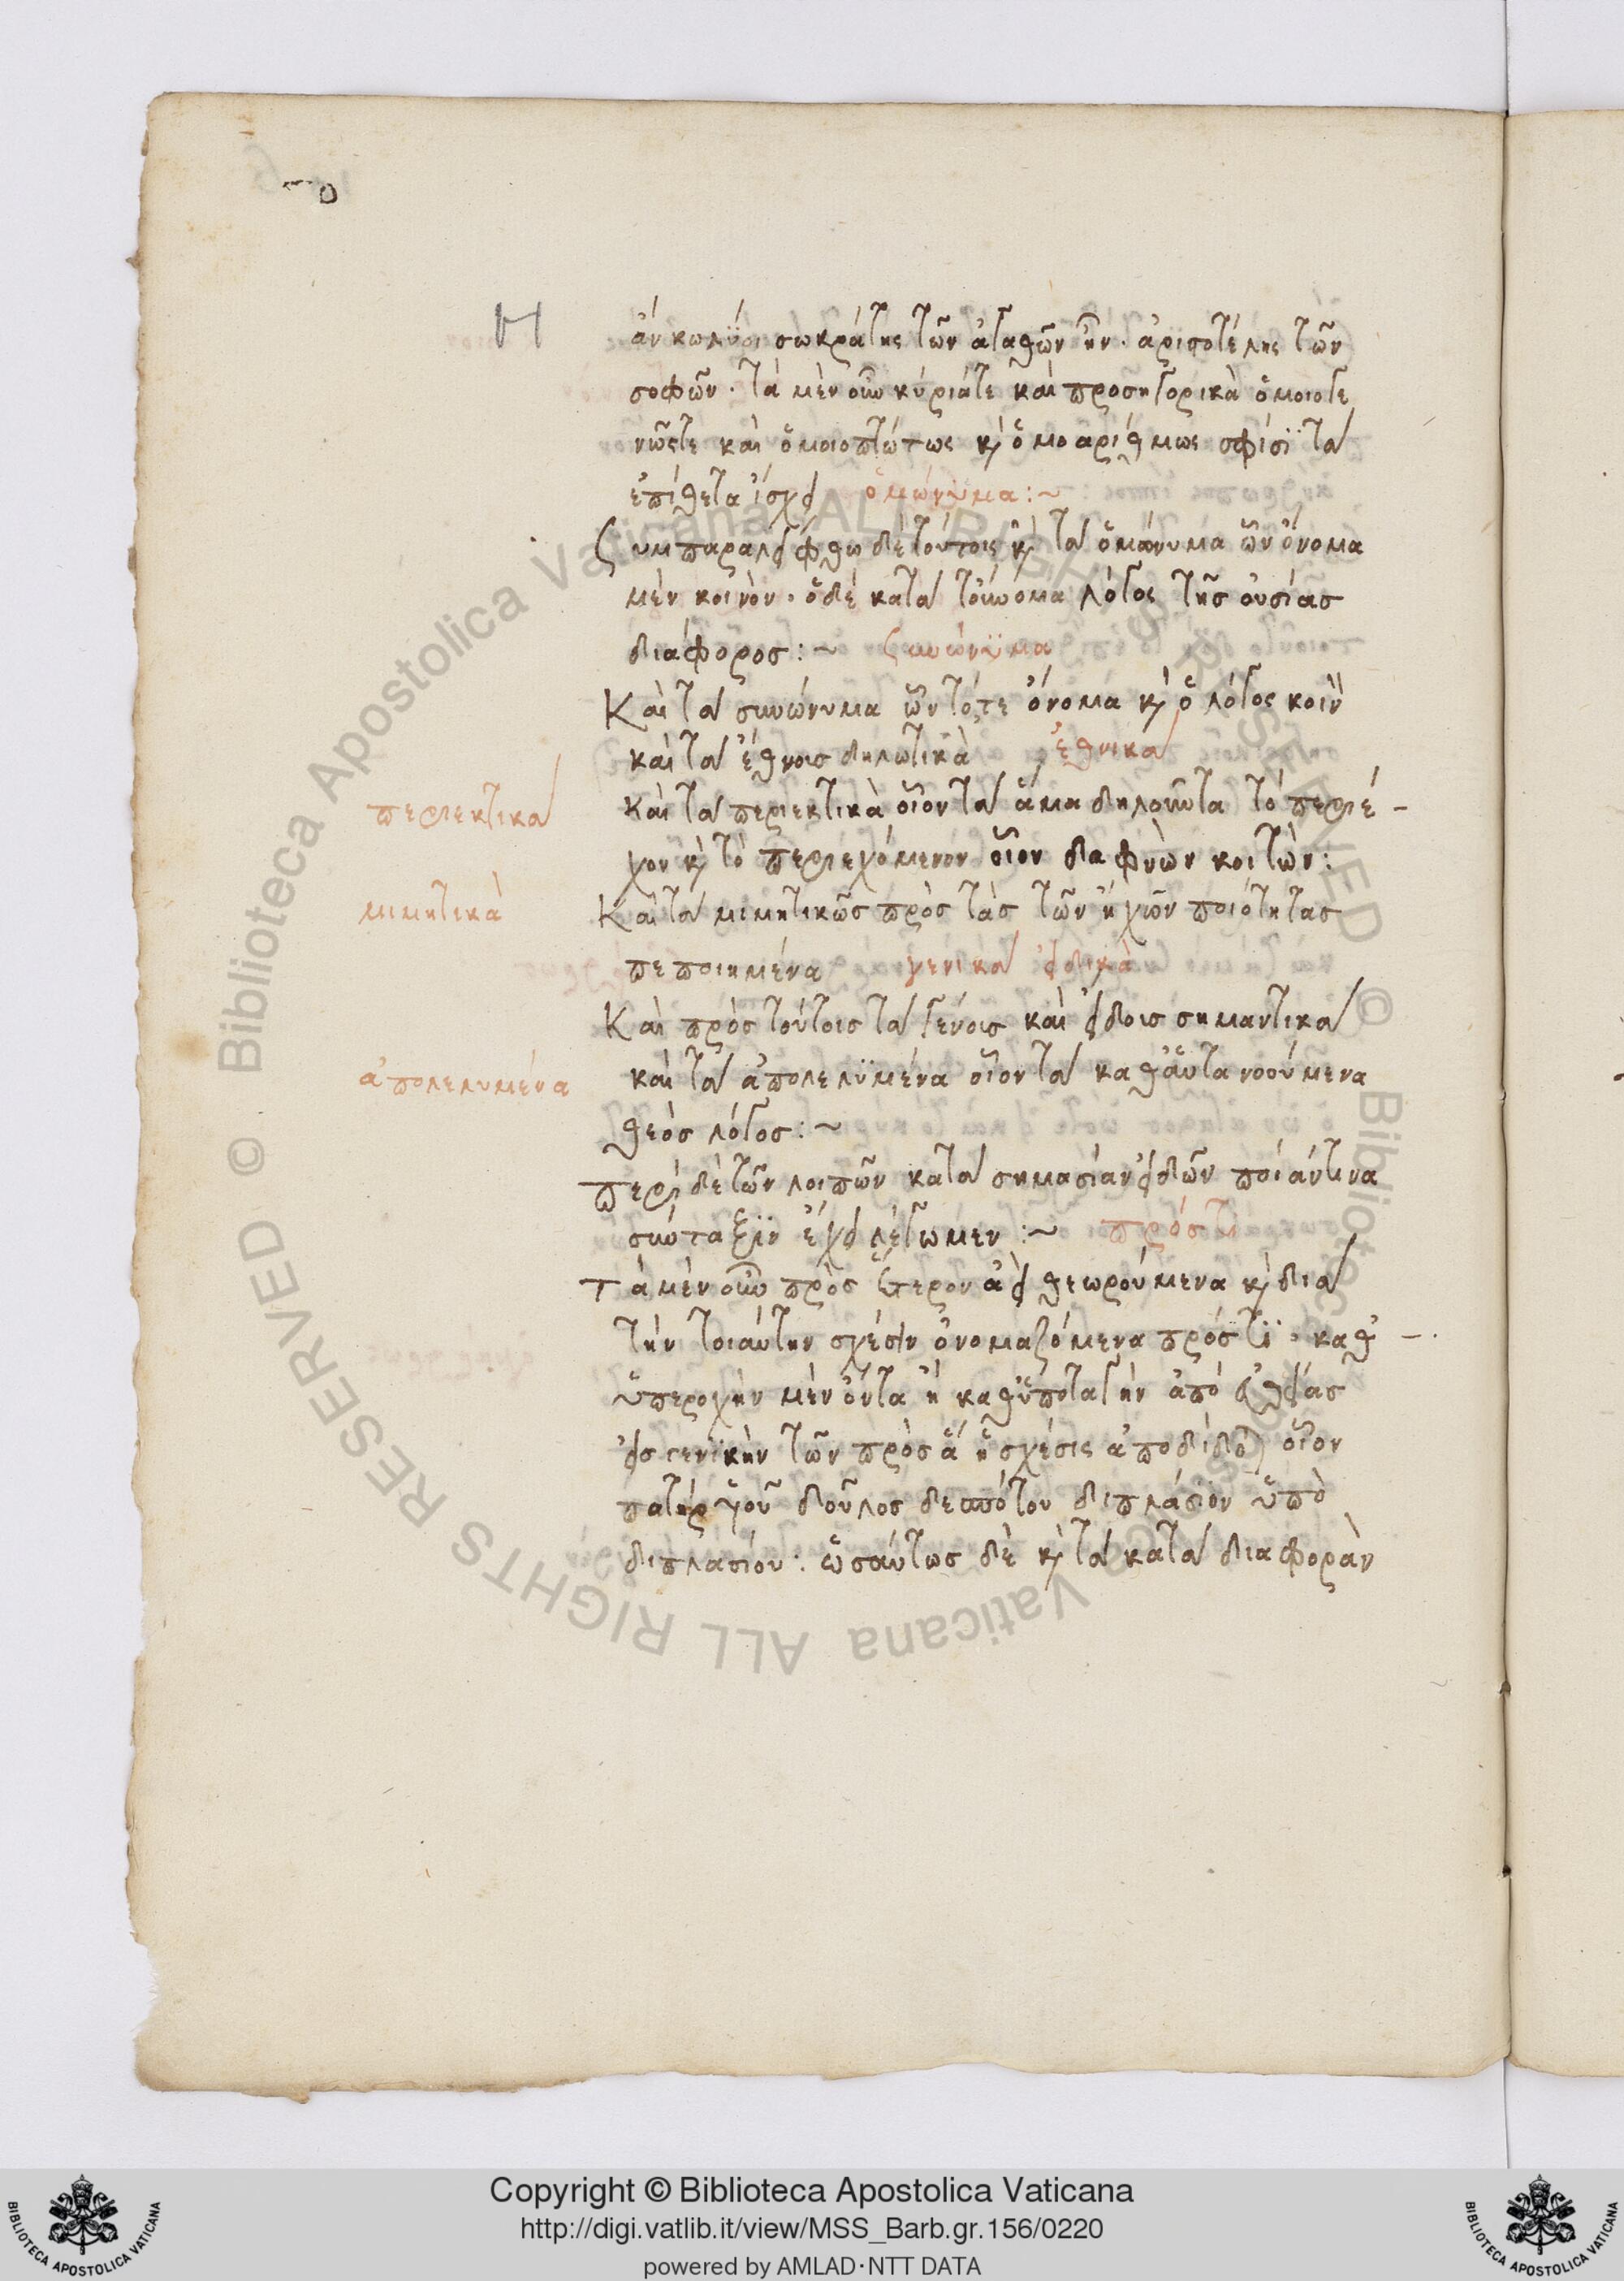 ἀν κωλύοι σωκράτης τῶν ἀγαθῶν ἦν · ἀριστοτέλης τῶν
σοφῶν · τὰ μὲν οὖν κύριάτε καὶ προσηγορικὰ ὁμοιογε
νῶςτε καὶ ὁμοιοπτώτως κ ὁμοαρίθμως σφίσϊ τὰ
ἐπίθετα ἴσχει ὁμώνυμα :~
Συμπαραλειφθω δὲ τούτοις κ τὰ ὁμώνυμα ὧν ὄνομα
μὲν κοινὸν · ὁδὲ κατὰ τοὔνομα λόγος τῆσ οὐσίασ
διάφοροσ :~ Συνώνϋμα
Καὶ τὰ συνώνυμα ὧν τότε ὄνομα κ ὁ λόγος κοινὸ
καὶ τὰ ἔθνουσ δηλωτικὰ ἐθνικὰ
περιεκτικὰ καὶ τὰ περιεκτικὰ οἷον τὰ ἅμα δηλοῦντα τὸ περιέ -
χον κ τὸ περιεχόμενον οἷον δαφνὼν κοιτών :
μιμητικὰ Καὶ τὰ μιμητικῶσ πρὸσ τὰσ τῶν ἠχῶν ποιότητασ
πεποιημένα γενικὰ εἰδικὰ
Καὶ πρὸσ τούτοισ τὰ γένουσ καὶ εἴδουσ σημαντικὰ
ἀπολελυμένα καὶ τὰ ἀπολελϋμένα οἷον τὰ καθἁυτὰ νοούμενα
θεὸσ λόγοσ :~
περὶ δὲ τῶν λοιπῶν κατὰ σημασίαν εἰδῶν ποίαντινα
σύνταξϊν ἔχει λέγωμεν :~ πρόστι
Τὰ μὲν οὖν πρὸσ ἕτερον ἀεὶ θεωρούμενα κ διὰ
τὴν τοιαύτην σχέσιν ὀνομαζόμενα πρόστϊ · καθ -
ὑπεροχὴν μὲν ὄντα ἢ καθὑποταγὴν ἀπὸ εὐθείασ
εἰσ γενϊκὴν τῶν πρὸσ ἃ ἡ σχέσις ἀποδίδοται οἷον
πατὴρ ϋοῦ δοῦλοσ δεσπότου διπλάσϊον ὑπὸ
διπλασίου : ὡσαύτωσ δὲ κ τὰ κατὰ διαφορὰν
Copyright © Biblioteca Apostolica Vaticana
http://digi.vatlib.it/view/MSS_Barb.gr.156/0220
powered by AMLAD·NTT DATA